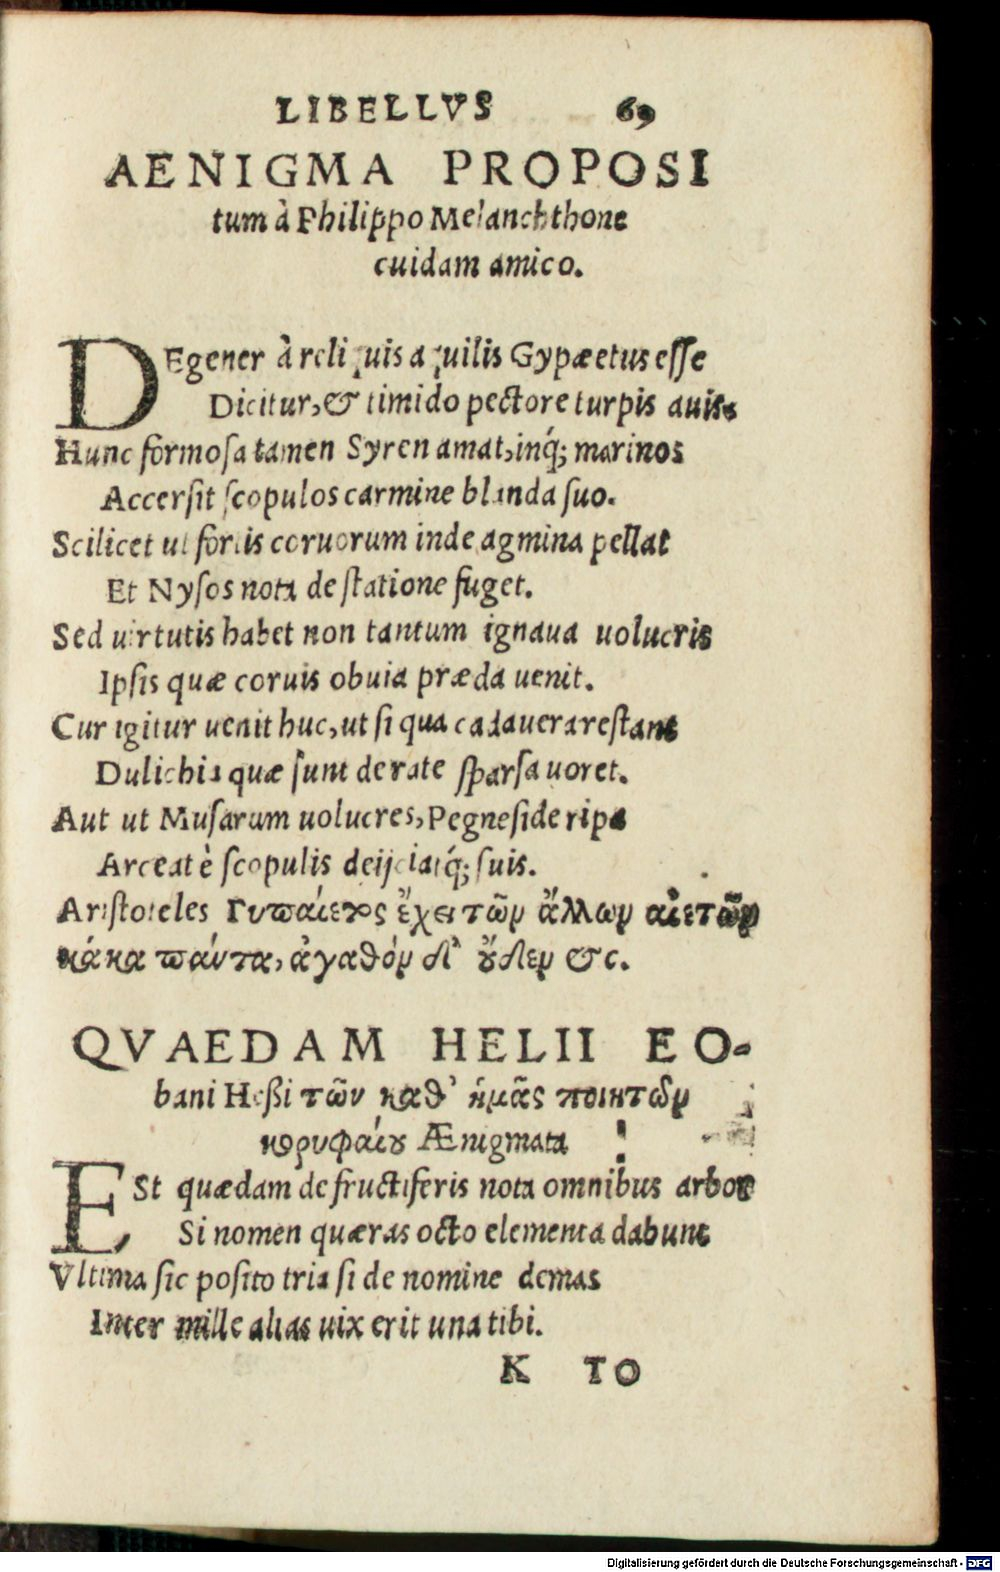 LIBELLVS 69
AENIGMA PROPOSI
tum à Philippo Melanchthone
cuidam amico.
DEgener à reliquis aquilis Gypæetus esse
Dicitur, & timido pectore turpis auis.
Hunc formosa tamen Syren amat, inq́; marinos
Accersit scopulos carmine blanda suo.
Scilicet ut fortis coruorum inde agmina pellat
Et Nysos nota de statione fuget.
Sed uirtutis habet non tantum ignaua uolucris
Ipsis quæ coruis obuia præda uenit.
Cur igitur uenit huc, ut si qua cadauera restant
Dulichia quæ sunt de rate sparsa uoret.
Aut ut Musarum uolucres, Pegneside ripa
Arceat è scopulis deijciatq́; suis.
Aristoteles Γυπαίετος ἔχει τῶν ἄλλων αἰετῶν
κάκα πάντα, ἀγαθόν δ' ὄυδεν &c.
QVAEDAM HELII EO-
bani Heßi τῶν καθ' ἡμᾶς ποιητῶν
κορυφαίου Ænigmata
ESt quædam de fructiferis nota omnibus arbor
Si nomen quæras octo elementa dabunt
Vltima sic posito tria si de nomine demas
Inter mille alias uix erit una tibi.
K TO
Digitalisierung gefördert durch die Deutsche Forschungsgemeinschaft - DFG